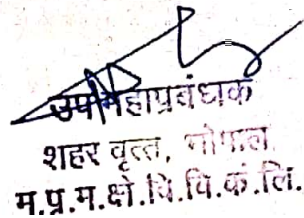 उपमहाप्रबंधक
शहर वृत्त, भोपाल
म.प्र.म.क्षे.वि.वि.कं.लि.